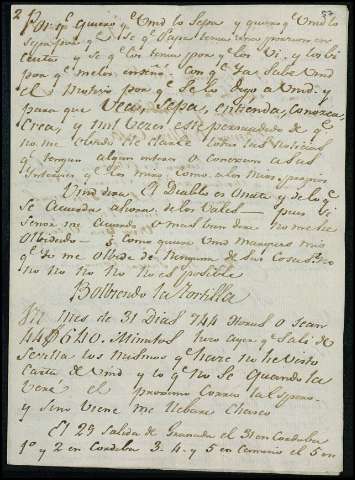 2
Por qe quiero qe Vmd lo Sepa y quiero qe Vmd lo
sepa por qe Se qe Papa tenia una porcion en
y se qe los tenia por qe los Vi, y los Vi
por qe me los enseñó. Con qe Ya Sabe Vmd
el Motivo por qe Se lo digo a Vmd. y
para que Vea, Sepa, entienda, conozca,
Crea, y mil Veces este persuadido de qe
no me olvido de darle todas las Noticias
qe tengan algun interes o Conexion a sus
Intereses qe los miro como a los mios propios
Vmd dira El Diablo es Oñate y de lo qe
Se acuerda ahora de los Vales — pues Si
Señor me acuerdo o mas bien dire no me he
Olvidado — Como quiere Vmd
qe Yo me olbide de ninguna de Sus Cosas. no
no no no no no es posible
Bolbiendo la tortilla
Un Mes de 31 Dias 744 Horas o sean
44$640. Minutos hizo ayer qe Sali de
Sevilla los mismos qe hace no he visto
Carta de Vmd y lo qe no Se quando la
Veré el proximo Correo la Espero.
y Si no Viene me llebaré Chasco
El 29 Salida de Granada el 31 en Cordoba
1o y 2 en Cordoba 3. 4. y 5 en camino el 5 en